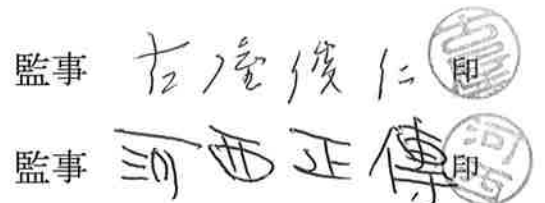 監事 古屋俊仁 印
監事 河西正傳 印